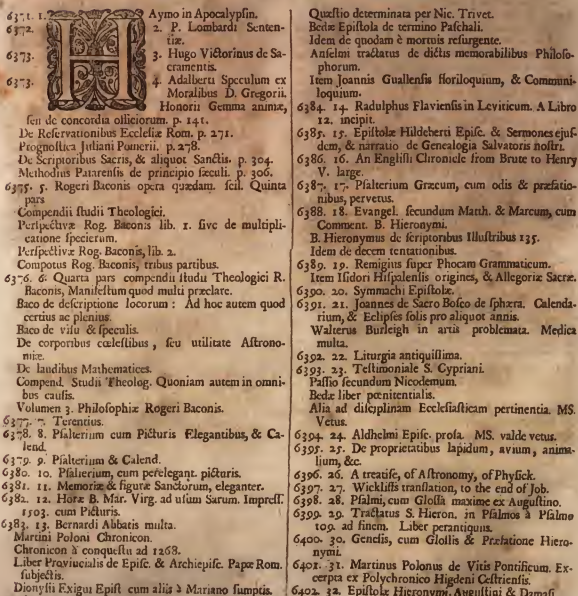 6371. 1. HAymo in Apocalypsin.
6372. 2. P. Lombardi Senten-
tiæ.
6373. 3. Hugo Victorinus de Sa-
cramentis.
6373. 4. Adalberti Speculum ex
Moralibus D. Gregorii.
Honorii Gemma animæ,
seu de concordia officiorum. p. 141.
De Reservationibus Ecclesiæ Rom. p. 271.
Prognostica Juliani Pomerii. p. 278.
De Scriptoribus Sacris, & aliquot Sanctis. p. 304.
Methodius Patarensis de principio sæculi. p. 306.
6375. 5. Rogeri Baconis opera quædam. scil. Quinta
pars
Compendii studii Theologici.
Perspectivæ Rog. Baconis lib. 1. sive de multipli-
catione specierum.
Perspectivæ Rog. Baconis, lib. 2.
Compotus Rog. Baconis, tribus partibus.
6376. 6. Quarta pars compendii studu Theologici R.
Baconis, Manifestum quod multi præclare.
Baco de descriptione locorum : Ad hoc autem quod
certius ac plenius.
Baco de visu & speculis.
De corporibus cœlestibus, seu utilitate Astrono-
miæ.
De laudibus Mathematices.
Compend. Studii Theolog. Quoniam autem in omni-
bus causis.
Volumen 3. Philosophiæ Rogeri Baconis.
6377. 7. Terentius.
6378. 8. Psalterium cum Picturis Elegantibus, & Ca-
lend.
6379. 9. Psalterium & Calend.
6380. 10. Psalterium, cum perelegant. picturis.
6381. 11. Memoriæ & figuræ Sanctorum, eleganter.
6382. 12. Horæ B. Mar. Virg. ad usum Sarum. Impress.
1503. cum Picturis.
6383. 13. Bernardi Abbatis multa.
Martini Poloni Chronicon.
Chronicon à conquestu ad 1268.
Liber Provincialis de Episc. & Archiepisc. Papæ Rom.
subjectis.
Dionysii Exigui Epist cum aliis à Mariano sumptis.
Quæstio determinata per Nic. Trivet.
Bedæ Epistola de termino Paschali.
Idem de quodam è mortuis resurgente.
Anselmi tractatus de dictis memorabilibus Philoso-
phorum.
Item Joannis Guallensis floriloquium, & Communi-
loquium.
6384. 14. Radulphus Flaviensis in Leviticum. A Libro
12. incipit.
6385. 15. Epistolæ Hildeberti Episc. & Sermones ejus-
dem, & narratio de Genealogia Salvatoris nostri.
6386. 16. An English Chronicle from Brute to Henry
V. large.
6387. 17. Psalterium Græcum, cum odis & præfatio-
nibus, pervetus.
6388. 18. Evangel. secundum Matth. & Marcum, cum
Comment. B. Hieronymi.
B. Hieronymus de scriptoribus Illustribus 135.
Idem de decem tentationibus.
6389. 19. Remigius super Phocam Grammaticum.
Item Isidori Hispalensis origines, & Allegoriæ Sacræ.
6390. 20. Symmachi Epistolæ.
6391. 21. Joannes de Sacro Bosco de sphæra. Calenda-
rium, & Eclipses solis pro aliquot annis.
Walterus Burleigh in artis problemata. Medica
multa.
6392. 22. Liturgia antiquissima.
6393. 23. Testimoniale S. Cypriani.
Passio secundum Nicodemum.
Bedæ liber pœnitentialis.
Alia ad disciplinam Ecclesiasticam pertinentia. MS.
Vetus.
6394. 24. Aldhelmi Episc. prosa. MS. valde vetus.
6395. 25. De proprietatibus lapidum, avium, anima-
lium, &c.
6396. 26. A treatise, of Astronomy, of Physick.
6397. 27. Wickliffs translation, to the end of Job.
6398. 28. Psalmi, cum Glossa maxime ex Augustino.
6399. 29. Tractatus S. Hieron. in Psalmos à Psalmo
109. ad finem. Liber perantiquus.
6400. 30. Genesis, cum Glossis & Præfatione Hiero-
nymi.
6401. 31. Martinus Polonus de Vitis Pontificum. Ex-
cerpta ex Polychronico Higdeni Cestriensis.
6402. 32. Epistolæ Hieronymi, Augustini & Damasi